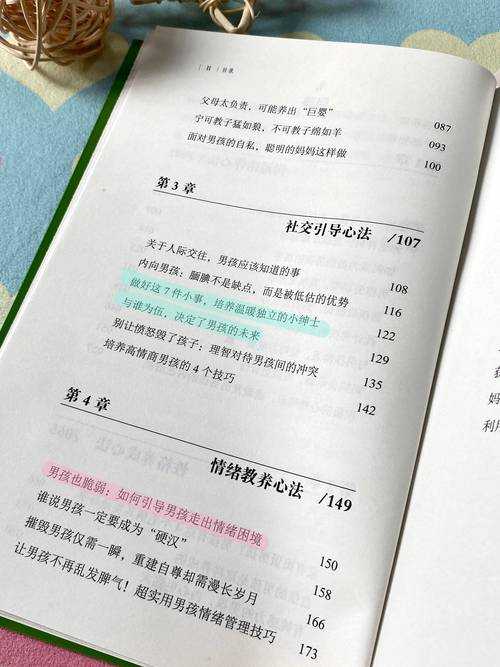 II 目录
父母太负责，可能养出“巨婴” 087
宁可教子猛如狼，不可教子绵如羊 093
面对男孩的自私，聪明的妈妈这样做 100
第 3 章
社交引导心法 /107
关于人际交往，男孩应该知道的事 108
内向男孩：腼腆不是缺点，而是被低估的优势 116
做好这 7 件小事，培养温暖独立的小绅士 122
与谁为伍，决定了男孩的未来 129
别让愤怒毁了孩子：理智对待男孩间的冲突 135
培养高情商男孩的 4 个技巧 142
第 4 章
情绪教养心法 /149
男孩也脆弱：如何引导男孩走出情绪困境 150
谁说男孩一定要成为“硬汉” 158
摧毁男孩仅需一瞬，重建自尊却需漫长岁月 166
让男孩不再乱发脾气！超实用男孩情绪管理技巧 173
妈
利用